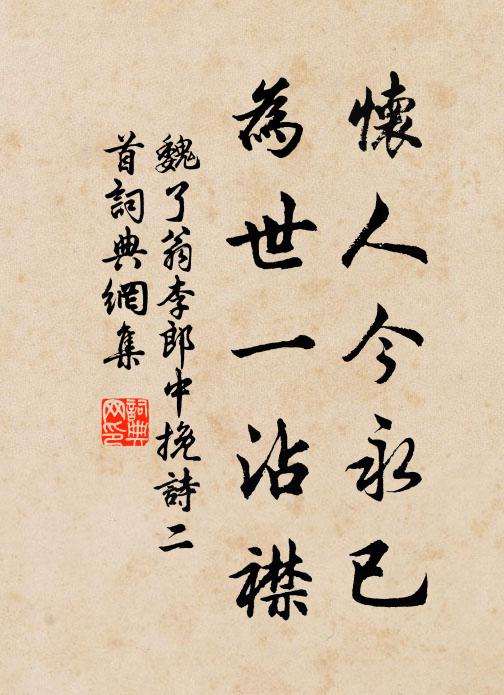 懷人今永已
為世一沾襟
魏了翁李郎中挽詩二
首詞典網集
詞典
网印